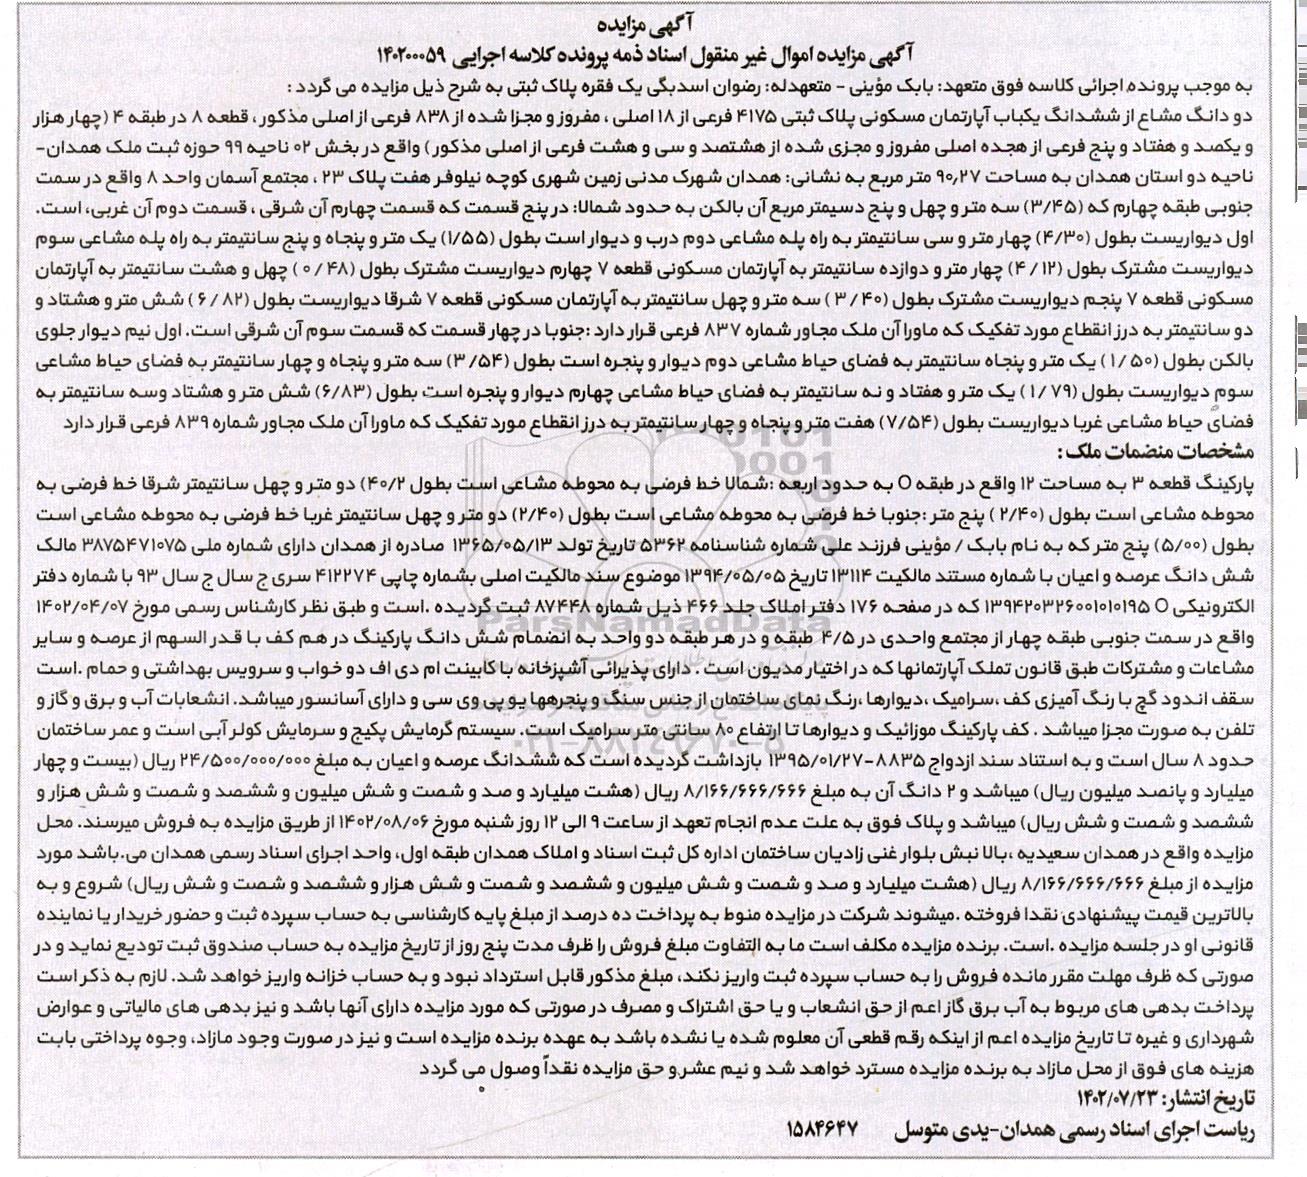 آگهی مزایده
آگهی مزایده اموال غیر منقول اسناد ذمه پرونده کلاسه اجرایی ۱۴۰۲۰۰۰۵۹
به موجب پرونده اجرائی کلاسه فوق متعهد: بابک مؤینی - متعهدله: رضوان اسدبگی یک فقره پلاک ثبتی به شرح ذیل مزایده می گردد :
دو دانگ مشاع از ششدانگ یکباب آپارتمان مسکونی پلاک ثبتی ۴۱۷۵ فرعی از ۱۸ اصلی ، مفروز و مجزا شده از ۸۳۸ فرعی از اصلی مذکور ، قطعه ۸ در طبقه ۴ (چهار هزار
و یکصد و هفتاد و پنج فرعی از هجده اصلی مفروز و مجزی شده از هشتصد و سی و هشت فرعی از اصلی مذکور) واقع در بخش ۰۲ ناحیه ۹۹ حوزه ثبت ملک همدان-
ناحیه دو استان همدان به مساحت ۹۰٫۲۷ متر مربع به نشانی: همدان شهرک مدنی زمین شهری کوچه نیلوفر هفت پلاک ۲۳ ، مجتمع آسمان واحد ۸ واقع در سمت
جنوبی طبقه چهارم که (۳/۴۵) سه متر و چهل و پنج دسیمتر مربع آن بالکن به حدود شمالا: در پنج قسمت که قسمت چهارم آن شرقی ، قسمت دوم آن غربی، است.
اول دیواریست بطول (۴/۳۰) چهار متر و سی سانتیمتر به راه پله مشاعی دوم درب و دیوار است بطول (۱/۵۵) یک متر و پنجاه و پنج سانتیمتر به راه پله مشاعی سوم
دیواریست مشترک بطول (۴/۱۲) چهار متر و دوازده سانتیمتر به آپارتمان مسکونی قطعه ۷ چهارم دیواریست مشترک بطول (۰/۴۸) چهل و هشت سانتیمتر به آپارتمان
مسکونی قطعه ۷ پنجم دیواریست مشترک بطول (۳/۴۰) سه متر و چهل سانتیمتر به آپارتمان مسکونی قطعه ۷ شرقا دیواریست بطول (۶/۸۲) شش متر و هشتاد و
دو سانتیمتر به درز انقطاع مورد تفکیک که ماورا آن ملک مجاور شماره ۸۳۷ فرعی قرار دارد :جنوبا در چهار قسمت که قسمت سوم آن شرقی است. اول نیم دیوار جلوی
بالکن بطول (۱/۵۰) یک متر و پنجاه سانتیمتر به فضای حیاط مشاعی دوم دیوار و پنجره است بطول (۳/۵۴) سه متر و پنجاه و چهار سانتیمتر به فضای حیاط مشاعی
سوم دیواریست بطول (۱/۷۹) یک متر و هفتاد و نه سانتیمتر به فضای حیاط مشاعی چهارم دیوار و پنجره است بطول (۶/۸۳) شش متر و هشتاد وسه سانتیمتر به
فضای حیاط مشاعی غربا دیواریست بطول (۷/۵۴) هفت متر و پنجاه و چهار سانتیمتر به درز انقطاع مورد تفکیک که ماورا آن ملک مجاور شماره ۸۳۹ فرعی قرار دارد
مشخصات منضمات ملک :
پارکینگ قطعه ۳ به مساحت ۱۲ واقع در طبقه O به حدود اربعه :شمالا خط فرضی به محوطه مشاعی است بطول ۴۰/۲) دو متر و چهل سانتیمتر شرقا خط فرضی به
محوطه مشاعی است بطول (۲/۴۰) پنج متر :جنوبا خط فرضی به محوطه مشاعی است بطول (۲/۴۰) دو متر و چهل سانتیمتر غربا خط فرضی به محوطه مشاعی است
بطول (۵/۰۰) پنج متر که به نام بابک / مؤینی فرزند علی شماره شناسنامه ۵۳۶۲ تاریخ تولد ۱۳۶۵/۰۵/۱۳ صادره از همدان دارای شماره ملی ۳۸۷۵۴۷۱۰۷۵ مالک
شش دانگ عرصه و اعیان با شماره مستند مالکیت ۱۳۱۱۴ تاریخ ۱۳۹۴/۰۵/۰۵ موضوع سند مالکیت اصلی بشماره چاپی ۴۱۲۲۷۴ سری ج سال ج سال ۹۳ با شماره دفتر
الکترونیکی O ۱۳۹۴۲۰۳۲۶۰۰۱۰۱۰۱۹۵ که در صفحه ۱۷۶ دفتر املاک جلد ۴۶۶ ذیل شماره ۸۷۴۴۸ ثبت گردیده .است و طبق نظر کارشناس رسمی مورخ ۱۴۰۲/۰۴/۰۷
واقع در سمت جنوبی طبقه چهار از مجتمع واحدی در ۴/۵ طبقه و در هر طبقه دو واحد به انضمام شش دانگ پارکینگ در هم کف با قدر السهم از عرصه و سایر
مشاعات و مشترکات طبق قانون تملک آپارتمانها که در اختیار مدیون است . دارای پذیرائی آشپزخانه با کابینت ام دی اف دو خواب و سرویس بهداشتی و حمام .است
سقف اندود گچ با رنگ آمیزی کف ،سرامیک ،دیوارها ،رنگ نمای ساختمان از جنس سنگ و پنجرهها یو پی وی سی و دارای آسانسور میباشد. انشعابات آب و برق و گاز و
تلفن به صورت مجزا میباشد . کف پارکینگ موزائیک و دیوارها تا ارتفاع ۸۰ سانتی متر سرامیک است. سیستم گرمایش پکیج و سرمایش کولر آبی است و عمر ساختمان
حدود ۸ سال است و به استناد سند ازدواج ۸۸۳۵-۱۳۹۵/۰۱/۲۷ بازداشت گردیده است که ششدانگ عرصه و اعیان به مبلغ ۲۴/۵۰۰/۰۰۰/۰۰۰ ریال (بیست و چهار
میلیارد و پانصد میلیون ریال) میباشد و ۲ دانگ آن به مبلغ ۸/۱۶۶/۶۶۶/۶۶۶ ریال (هشت میلیارد و صد و شصت و شش میلیون و ششصد و شصت و شش هزار و
ششصد و شصت و شش ریال) میباشد و پلاک فوق به علت عدم انجام تعهد از ساعت ۹ الی ۱۲ روز شنبه مورخ ۱۴۰۲/۰۸/۰۶ از طریق مزایده به فروش میرسند. محل
مزایده واقع در همدان سعیدیه ،بالا نبش بلوار غنی زادیان ساختمان اداره کل ثبت اسناد و املاک همدان طبقه اول، واحد اجرای اسناد رسمی همدان می.باشد مورد
مزایده از مبلغ ۸/۱۶۶/۶۶۶/۶۶۶ ریال (هشت میلیارد و صد و شصت و شش میلیون و ششصد و شصت و شش هزار و ششصد و شصت و شش ریال) شروع و به
بالاترین قیمت پیشنهادی نقدا فروخته .میشوند شرکت در مزایده منوط به پرداخت ده درصد از مبلغ پایه کارشناسی به حساب سپرده ثبت و حضور خریدار یا نماینده
قانونی او در جلسه مزایده .است. برنده مزایده مکلف است ما به التفاوت مبلغ فروش را ظرف مدت پنج روز از تاریخ مزایده به حساب صندوق ثبت تودیع نماید و در
صورتی که ظرف مهلت مقرر مانده فروش را به حساب سپرده ثبت واریز نکند، مبلغ مذکور قابل استرداد نبود و به حساب خزانه واریز خواهد شد. لازم به ذکر است
پرداخت بدهی های مربوط به آب برق گاز اعم از حق انشعاب و یا حق اشتراک و مصرف در صورتی که مورد مزایده دارای آنها باشد و نیز بدهی های مالیاتی و عوارض
شهرداری و غیره تا تاریخ مزایده اعم از اینکه رقم قطعی آن معلوم شده یا نشده باشد به عهده برنده مزایده است و نیز در صورت وجود مازاد، وجوه پرداختی بابت
هزینه های فوق از محل مازاد به برنده مزایده مسترد خواهد شد و نیم عشر.و حق مزایده نقداً وصول می گردد
تاریخ انتشار: ۱۴۰۲/۰۷/۲۳
ریاست اجرای اسناد رسمی همدان-یدی متوسل ۱۵۸۴۶۴۷
ParsNamadData
۰۲۱-۸۸۳۴۹۶۷۰-۵